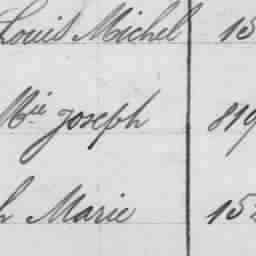 Louis Michel 15
Mie Joseph 819
h Marie 15